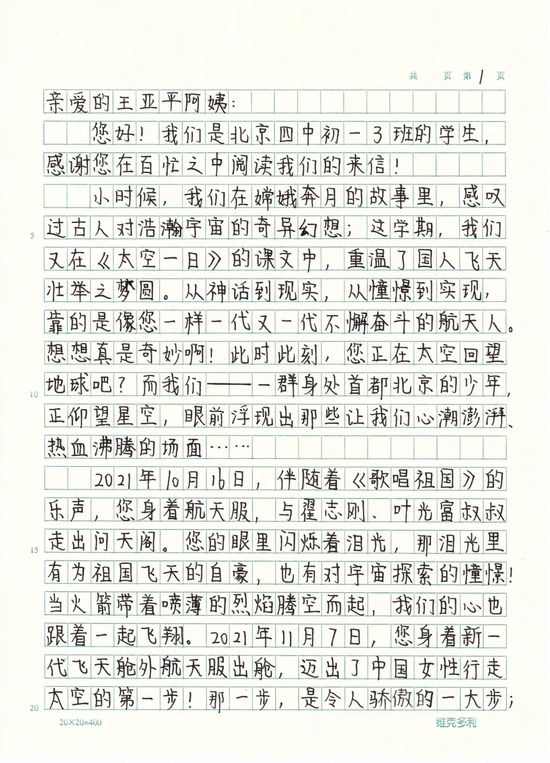 共 页 第 1 页
亲爱的王亚平阿姨：
您好！我们是北京四中初一3班的学生，
感谢您在百忙之中阅读我们的来信！
小时候，我们在嫦娥奔月的故事里，感叹
过古人对浩瀚宇宙的奇异幻想；这学期，我们
5
又在《太空一日》的课文中，重温了国人飞天
壮举之梦圆。从神话到现实，从憧憬到实现，
靠的是像您一样一代又一代不懈奋斗的航天人。
想想真是奇妙啊！此时此刻，您正在太空回望
地球吧？而我们——一群身处首都北京的少年，
10
正仰望星空，眼前浮现出那些让我们心潮澎湃、
热血沸腾的场面……
2021年10月16日，伴随着《歌唱祖国》的
乐声，您身着航天服，与翟志刚、叶光富叔叔
走出问天阁。您的眼里闪烁着泪光，那泪光里
15
有为祖国飞天的自豪，也有对宇宙探索的憧憬！
当火箭带着喷薄的烈焰腾空而起，我们的心也
跟着一起飞翔。2021年11月7日，您身着新一
代飞天舱外航天服出舱，迈出了中国女性行走
太空的第一步！那一步，是令人骄傲的一大步；
20
20×20=400 维克多利